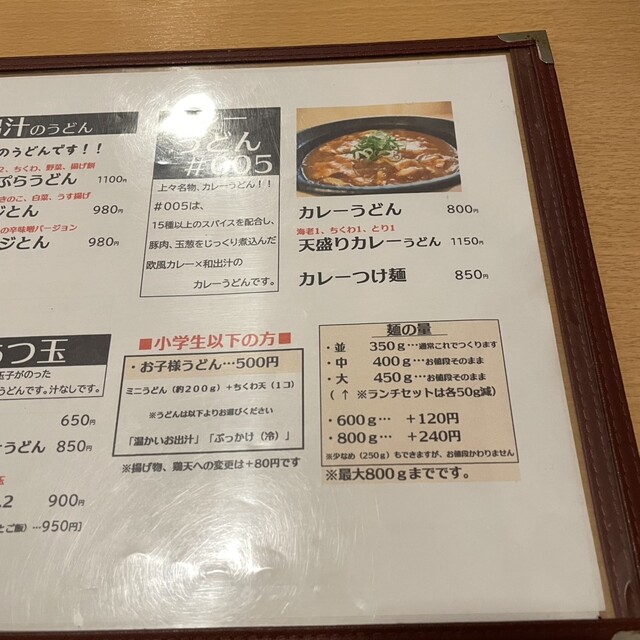 汁のうどん
のうどんです！！
2、ちくわ、野菜、揚げ餅
ぷらうどん 1100円
きのこ、白菜、うす揚げ
ジとん 980円
の辛味噌バージョン
ジとん 980円
うどん
#005
上々名物、カレーうどん！！
#005は、
15種以上のスパイスを配合し、
豚肉、玉葱をじっくり煮込んだ
欧風カレー×和出汁の
カレーうどんです。
カレーうどん 800円
海老1、ちくわ1、とり1
天盛りカレーうどん 1150円
カレーつけ麺 850円
つ玉
玉子がのった
うどんです。汁なしです。
650円
うどん 850円
玉
.2 900円
たご飯）…950円］
■小学生以下の方■
・お子様うどん…500円
ミニうどん（約200g）＋ちくわ天（1コ）
※うどんは以下よりお選びください
「温かいお出汁」「ぶっかけ（冷）」
※揚げ物、鶏天への変更は＋80円です
麺の量
・並 350g…通常これでつくります
・中 400g…お値段そのまま
・大 450g…お値段そのまま
（ ↑ ※ランチセットは各50g減）
・600g… ＋120円
・800g… ＋240円
※少なめ（250g）もできますが、お値段かわりません
※最大800gまでです。